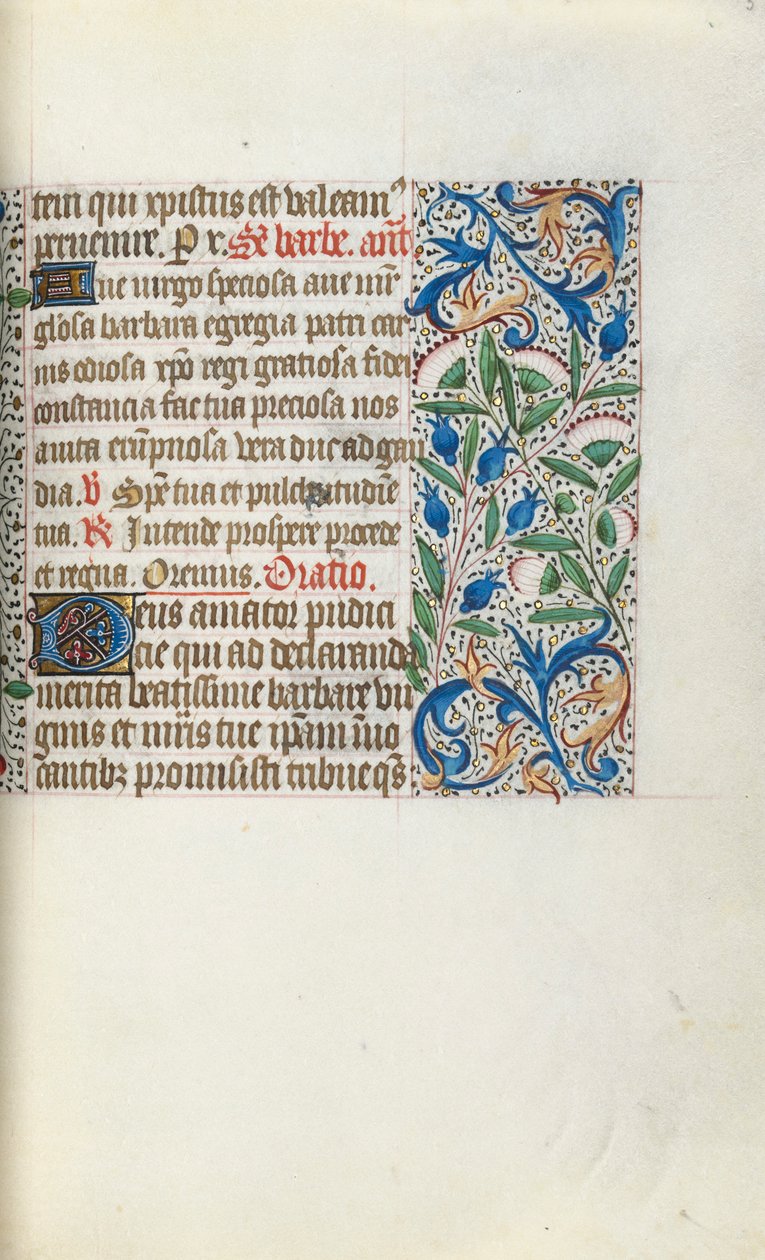 tem qui xpistus est valeam⁹
peruenire. P r. Sē barbe. añt.
Aue uirgo speciosa aue nur̄e
gl'osa barbara egregia patri car
nis odiosa xp̄o regi gratiosa fidei
constancia fac tua preciosa nos
a uita erūpnosa vera duc ad gau
dia. V Spē tua et pulchritudīe
tua. R Intende prospere procede
et regna. Oremus. Oratio.
Deus amator pudici
cie qui ad declaranda
merita beatissime barbare vir
ginis et mr̄is tue ip̄am īuo
cantibꝫ promisisti tribue qs̄